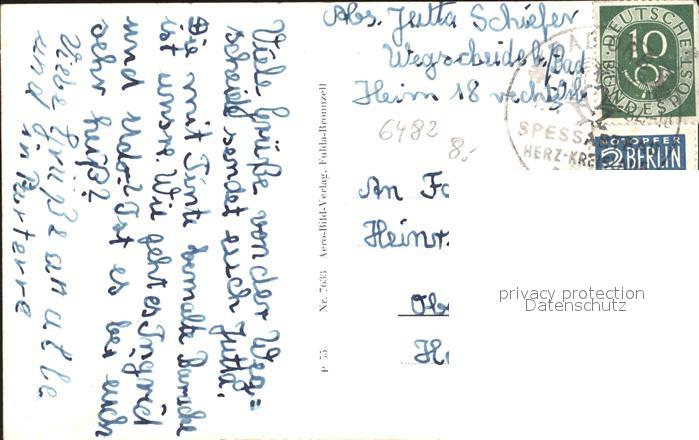 Viele Grüße von der Weg=
scheide sendet euch Jutta.
Die mit Tinte bemalte Baracke
ist unsre. Wie geht es Ingrid
und Udo? Ist es bei euch
sehr heiß?
Viebe Grüße an alle
und
in Parterre
P 55 Nr. 7633 Aero-Bild-Verlag, Fulda-Bronnzell
Abs. Jutta Schiefer
Wegscheide b/Bad
Heim 18 rechts
6482
8,-
An Fa
Heinr.
Ob
H
DEUTSCHE
BUNDESPOST
10
NOTOPFER
2 BERLIN
BAD
SPESSA
HERZ-KRE
privacy protection
Datenschutz